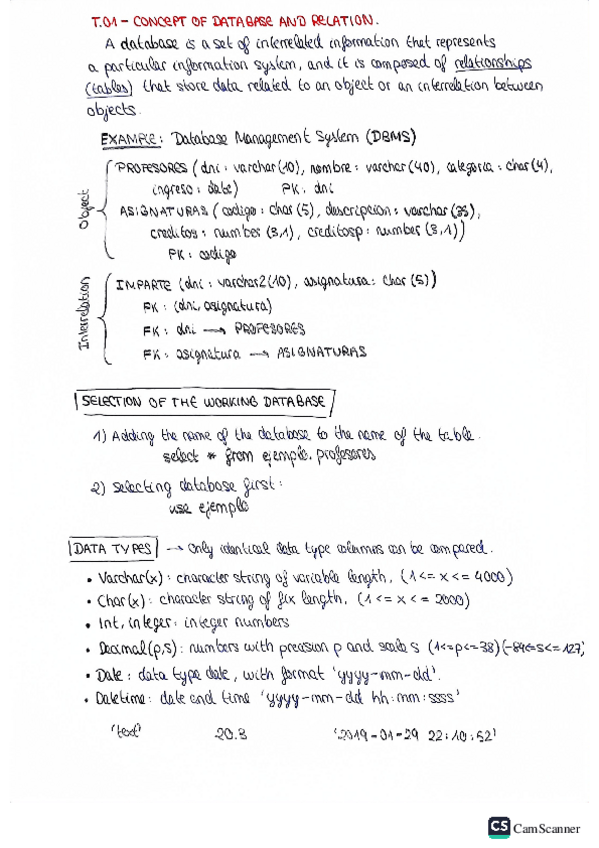 T.01 - CONCEPT OF DATABASE AND RELATION.
A database is a set of interrelated information that represents
a particular information system, and it is composed of relationships
(tables) that store data related to an object or an interrelation between
objects.
EXAMPLE: Database Management System (DBMS)
Object
PROFESORES (dni: varchar(10), nombre: varchar(40), categoria: char(4),
ingreso: date) PK: dni
ASIGNATURAS (codigo: char(5), descripcion: varchar(35),
creditos: number (3,1), creditosp: number (3,1))
PK: codigo
Interrelation
IMPARTE (dni: varchar2(10), asignatura: char(5))
PK: (dni, asignatura)
FK: dni → PROFESORES
FK: asignatura → ASIGNATURAS
SELECTION OF THE WORKING DATABASE
1) Adding the name of the database to the name of the table.
select * from ejemplo.profesores
2) Selecting database first:
use ejemplo
DATA TYPES → Only identical data type columns can be compared.
• Varchar(x): character string of variable length, (1<=x<=4000)
• Char(x): character string of fix length, (1<=x<=2000)
• Int, integer: integer numbers
• Decimal(p,s): numbers with precision p and scale s (1<=p<=38)(-84<=s<=127)
• Date: data type date, with format 'yyyy-mm-dd'.
• Datetime: date end time 'yyyy-mm-dd hh:mm:ssss'
'text' 20.3 '2019-01-29 22:10:52'
CS CamScanner